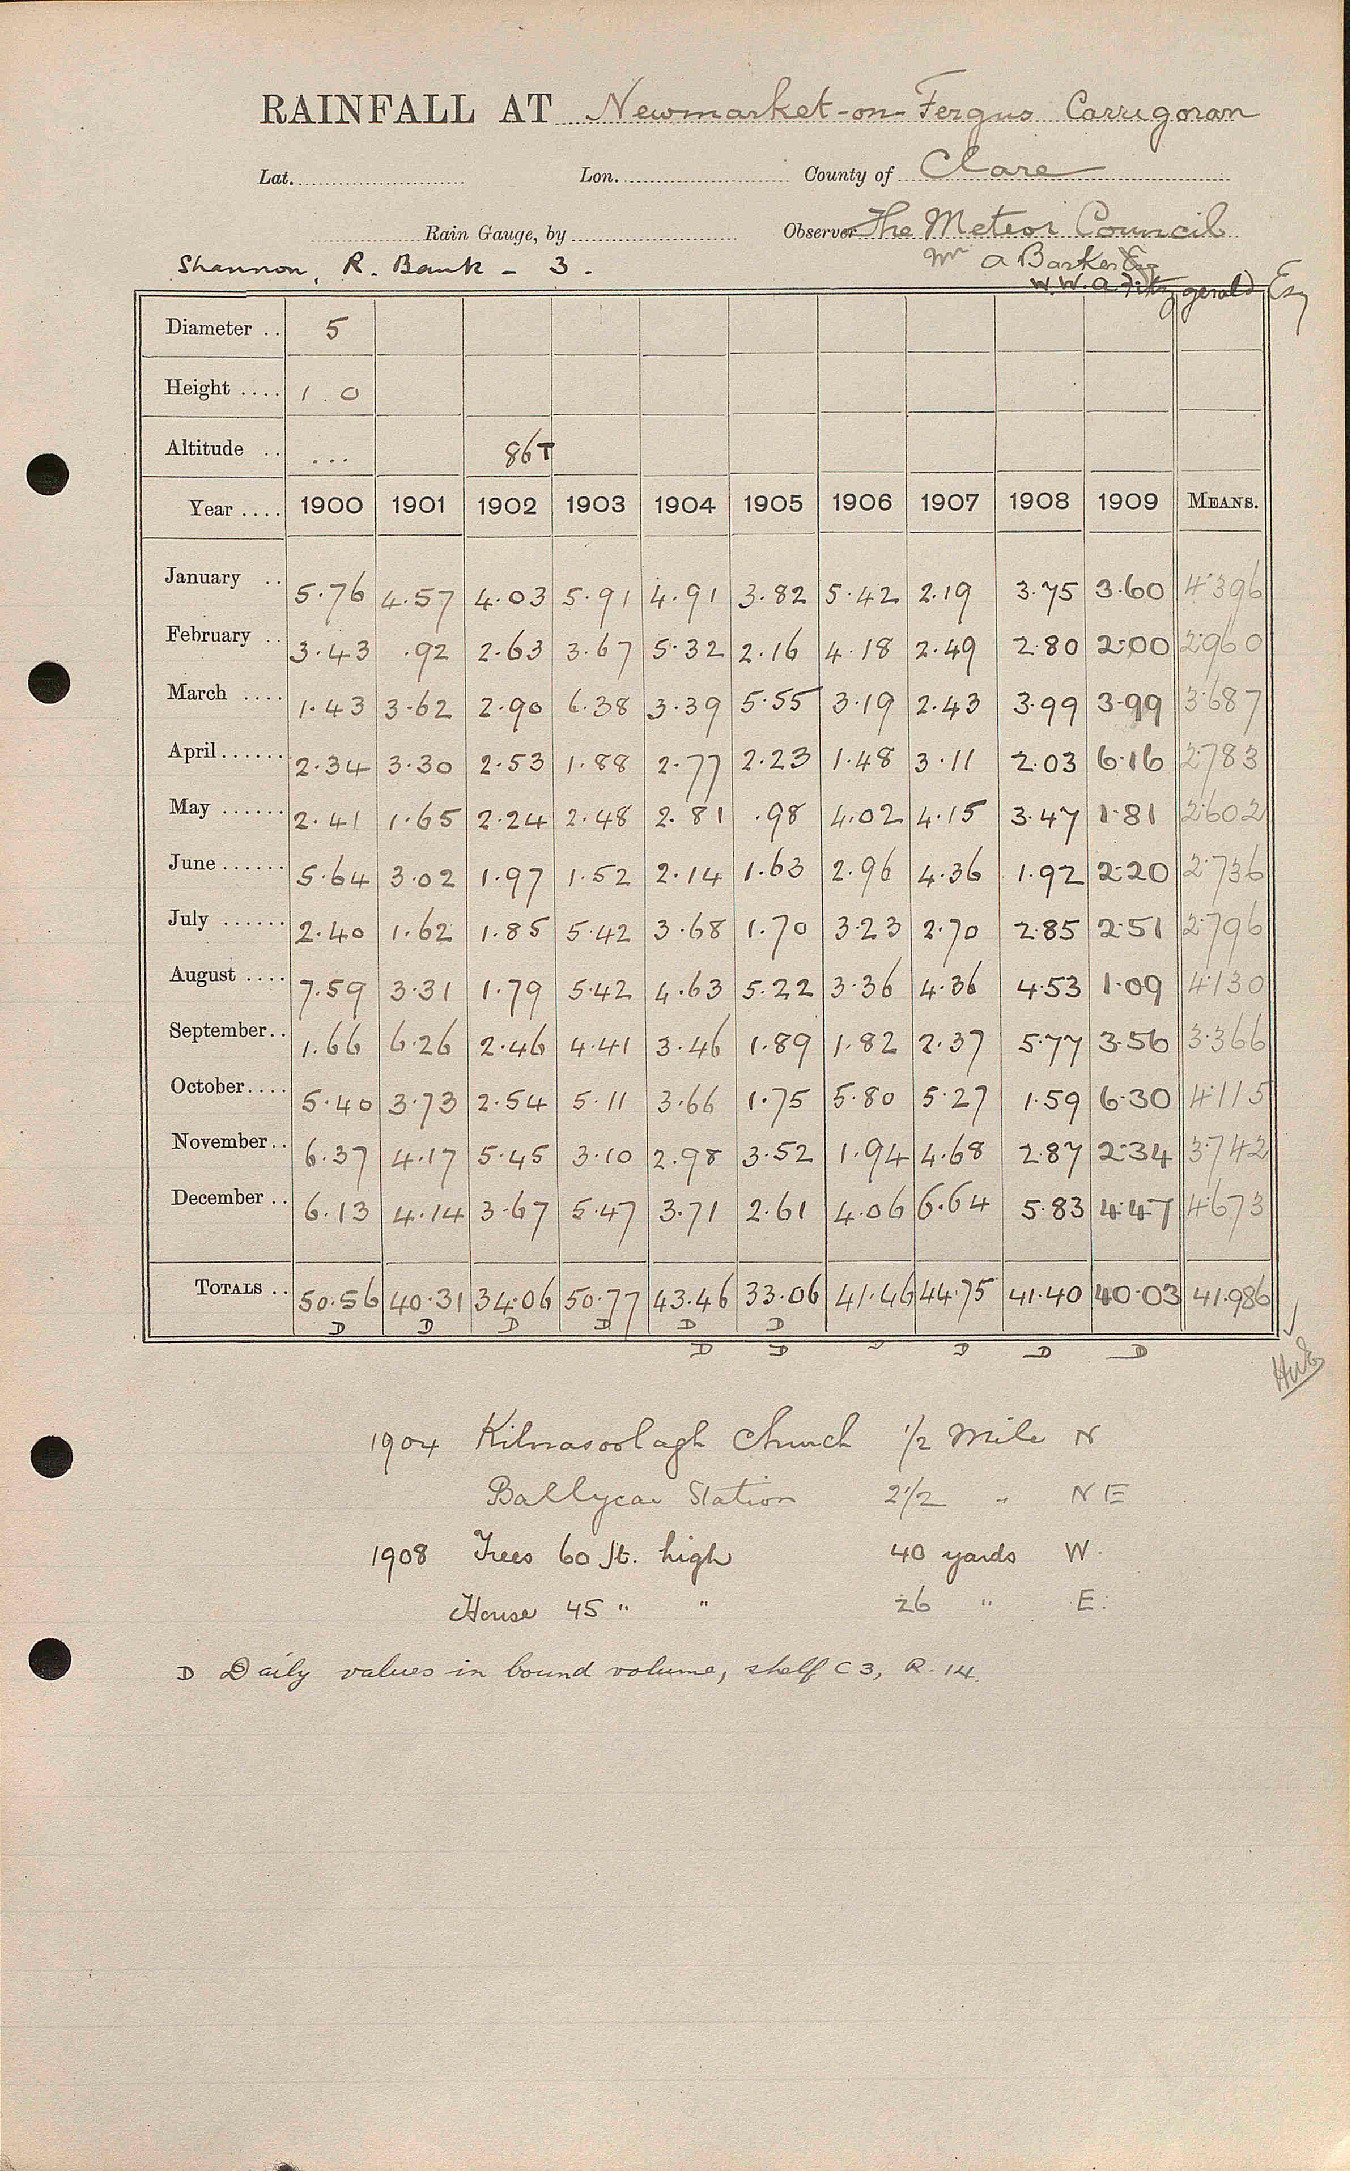 RAINFALL AT Newmarket-on-Fergus Carrigoran
Lat. Lon. County of Clare
Rain Gauge, by Observer The Meteor Council
Shannon, R. Bank - 3. Mr A Barker Esq
W. W. A. Fitzgerald Esq
Diameter .. 5
Height .... 1 . 0
Altitude .. ... 86T
Year .... 1900 1901 1902 1903 1904 1905 1906 1907 1908 1909 MEANS.
January .. 5.76 4.57 4.03 5.91 4.91 3.82 5.42 2.19 3.75 3.60 4.396
February .. 3.43 .92 2.63 3.67 5.32 2.16 4.18 2.49 2.80 2.00 2.960
March .... 1.43 3.62 2.90 6.38 3.39 5.55 3.19 2.43 3.99 3.99 3.687
April ...... 2.34 3.30 2.53 1.88 2.77 2.23 1.48 3.11 2.03 6.16 2.783
May ...... 2.41 1.65 2.24 2.48 2.81 .98 4.02 4.15 3.47 1.81 2.602
June ...... 5.64 3.02 1.97 1.52 2.14 1.63 2.96 4.36 1.92 2.20 2.736
July ...... 2.40 1.62 1.85 5.42 3.68 1.70 3.23 2.70 2.85 2.51 2.796
August .... 7.59 3.31 1.79 5.42 4.63 5.22 3.36 4.36 4.53 1.09 4.130
September.. 1.66 6.26 2.46 4.41 3.46 1.89 1.82 2.37 5.77 3.56 3.366
October.... 5.40 3.73 2.54 5.11 3.66 1.75 5.80 5.27 1.59 6.30 4.115
November.. 6.37 4.17 5.45 3.10 2.98 3.52 1.94 4.68 2.87 2.34 3.742
December .. 6.13 4.14 3.67 5.47 3.71 2.61 4.06 6.64 5.83 4.47 4.673
TOTALS .. 50.56 40.31 34.06 50.77 43.46 33.06 41.46 44.75 41.40 40.03 41.986
D D D D D D
D D D D D
1904 Kilnasoolagh Church 1/2 Mile N
Ballycar Station 2 1/2 " NE
1908 Trees 60 ft. high 40 yards W.
House 45 " " 26 " E.
D Daily values in bound volume, shelf C3, R. 14.